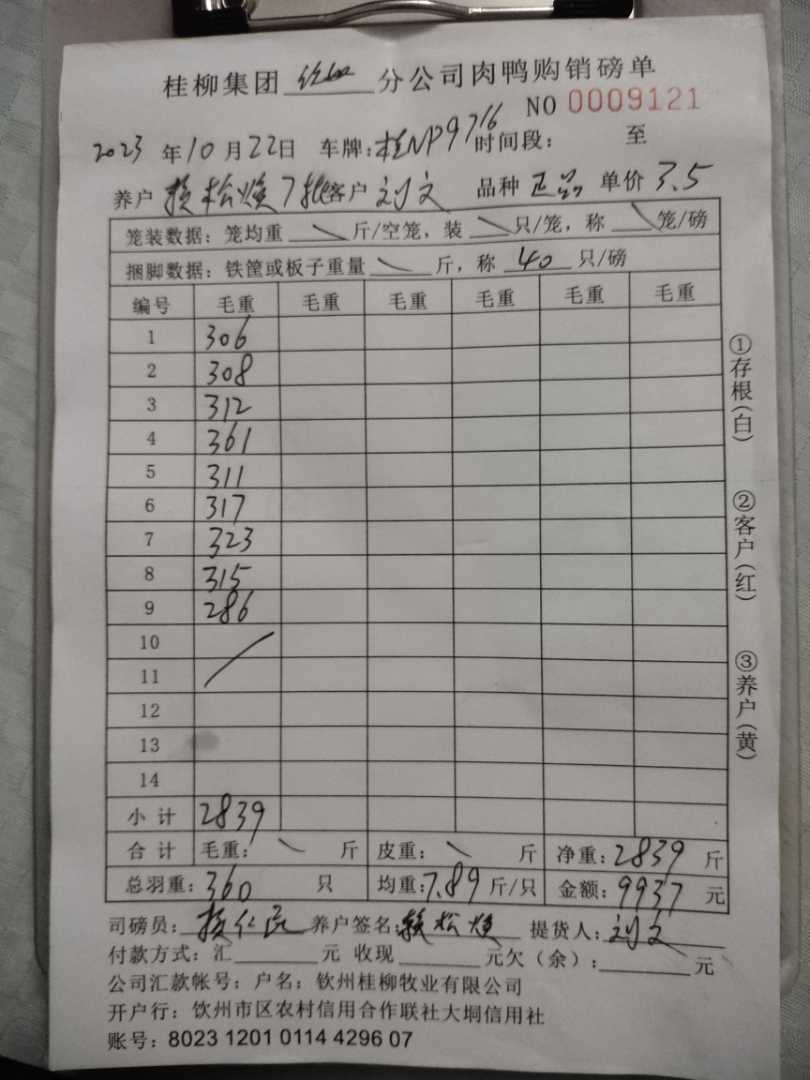 桂柳集团 钦州 分公司肉鸭购销磅单
NO 0009121
2023 年 10 月 22 日 车牌: 桂NP9716 时间段: 至
养户 松焕 7批 客户 刘文 品种 正品 单价 3.5
笼装数据: 笼均重 \ 斤/空笼, 装 \ 只/笼, 称 \ 笼/磅
捆脚数据: 铁筐或板子重量 \ 斤, 称 40 只/磅
编号 毛重 毛重 毛重 毛重 毛重 毛重
1 306
2 308
3 312
4 361
5 311
6 317
7 323
8 315
9 286
10
11
12
13
14
小计 2839
合计 毛重: \ 斤 皮重: \ 斤 净重: 2839 斤
总羽重: 360 只 均重: 7.89 斤/只 金额: 9937 元
司磅员: 养户签名: 松焕 提货人: 刘文
付款方式: 汇 元 收现 元欠(余): 元
公司汇款帐号: 户名: 钦州桂柳牧业有限公司
开户行: 钦州市区农村信用合作联社大垌信用社
账号: 8023 1201 0114 4296 07
①存根(白)
②客户(红)
③养户(黄)